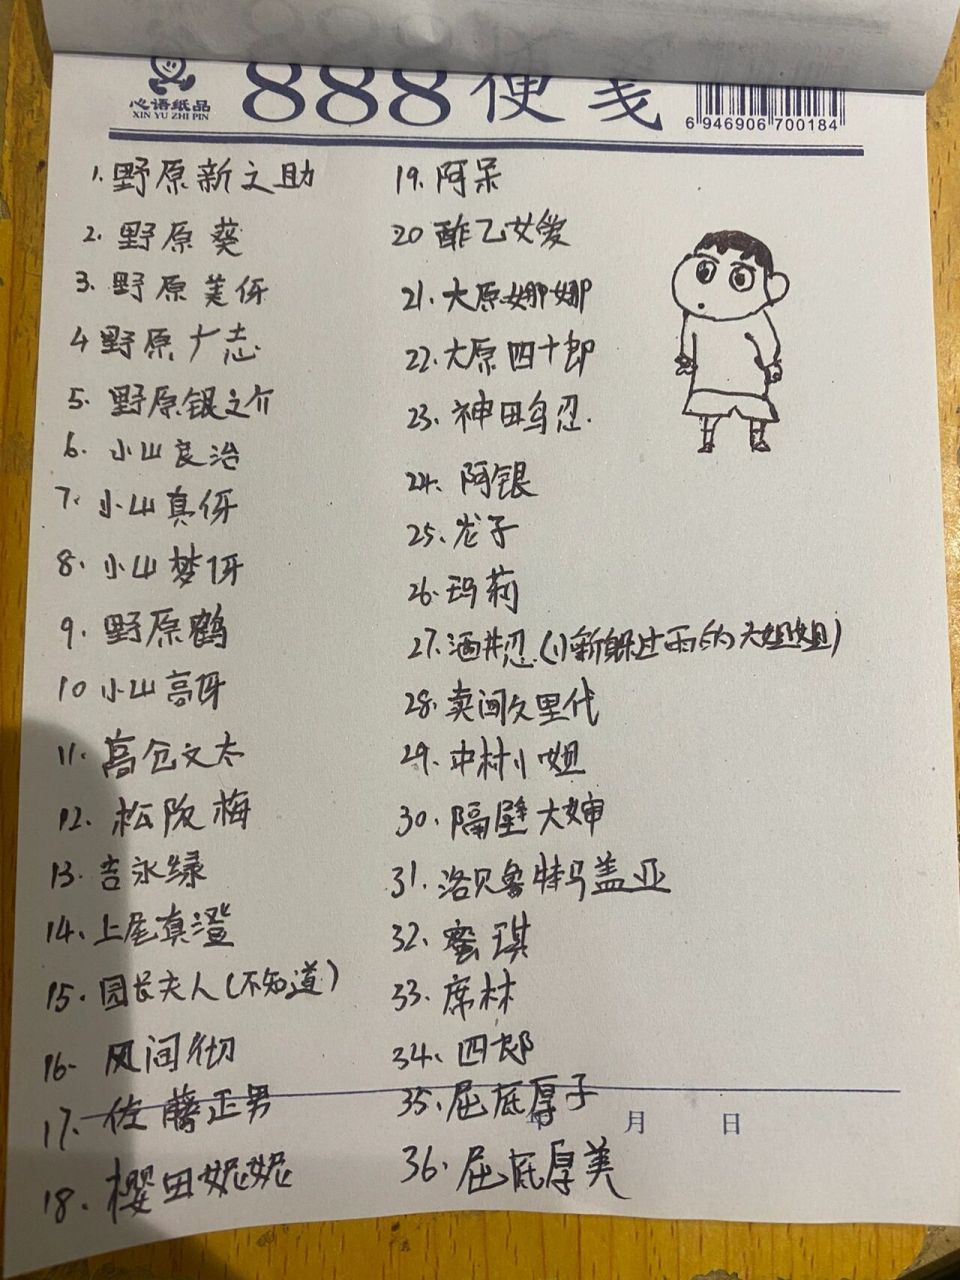 心语纸品
XIN YU ZHI PIN
888便笺
6 946906 700184
1.野原新之助
2.野原葵
3.野原美伢
4 野原广志
5.野原银之介
6.小山良治
7.小山真伢
8.小山梦伢
9.野原鹤
10 小山高伢
11.高仓文太
12.松阪梅
13.吉永绿
14、上尾真澄
15.园长夫人(不知道)
16.风间彻
17.佐藤正男
18.樱田妮妮
19.阿呆
20 酢乙女爱
21.大原娜娜
22.大原四十郎
23.神田鸟忍.
24.阿银
25、龙子
26.玛莉
27.酒井忍(小新躲过雨的大姐姐)
28.卖间久里代
29.中村小姐
30.隔壁大婶
31.洛贝鲁特马盖亚
32、蜜琪
33.席林
34.四郎
35.屈底厚子
36.屈底厚美
年 月 日